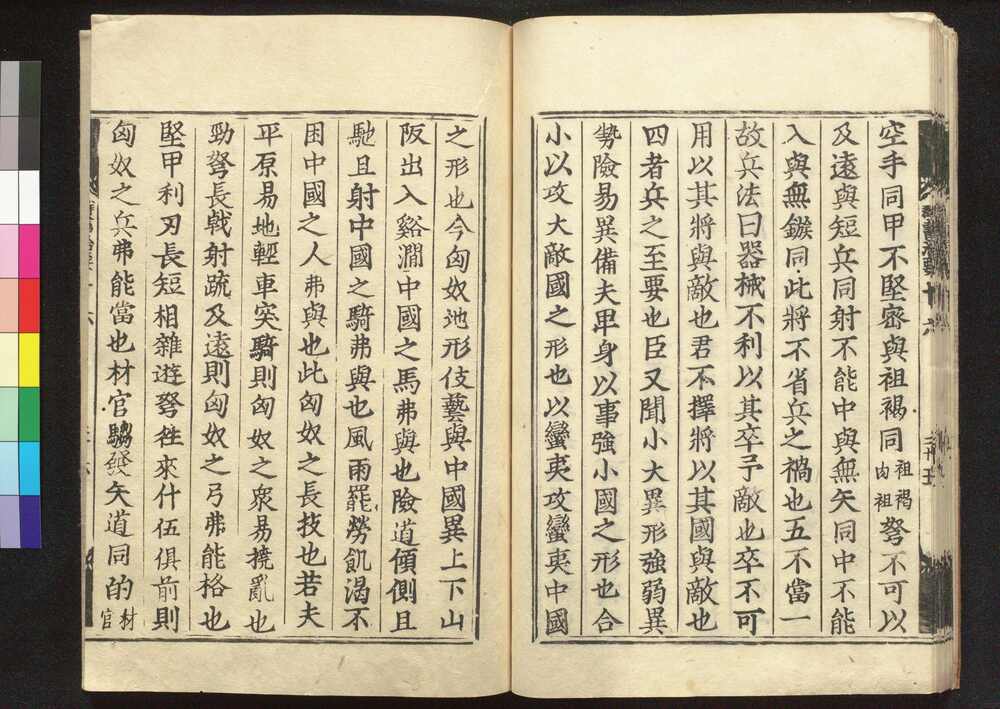 空手同甲不堅密與袒裼同袒裼肉袒弩不可以
及遠與短兵同射不能中與無矢同中不能
入與無鏃同此將不省兵之禍也五不當一
故兵法曰器械不利以其卒予敵也卒不可
用以其將與敵也君不擇將以其國與敵也
四者兵之至要也臣又聞小大異形強弱異
勢險易異備夫卑身以事強小國之形也合
小以攻大敵國之形也以蠻夷攻蠻夷中國
之形也今匈奴地形伎藝與中國異上下山
阪出入谿澗中國之馬弗與也險道傾側且
馳且射中國之騎弗與也風雨罷勞飢渴不
困中國之人弗與也此匈奴之長技也若夫
平原易地輕車突騎則匈奴之衆易撓亂也
勁弩長戟射疏及遠則匈奴之弓弗能格也
堅甲利刃長短相雜遊弩徃來什伍俱前則
匈奴之兵弗能當也材官騶發矢道同的材官